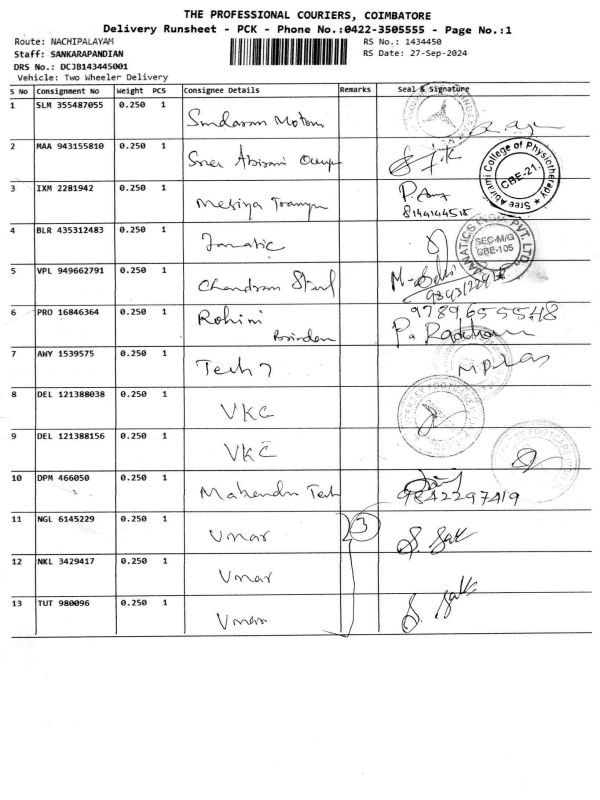 THE PROFESSIONAL COURIERS, COIMBATORE
Delivery Runsheet - PCK - Phone No.:0422-3505555 - Page No.:1
Route: NACHIPALAYAM RS No.: 1434450
Staff: SANKARAPANDIAN RS Date: 27-Sep-2024
DRS No.: DCJB143445001
Vehicle: Two Wheeler Delivery
S No Consignment No Weight PCS Consignee Details Remarks Seal & Signature
1 SLM 355487055 0.250 1 Sundaram Motors
2 MAA 943155810 0.250 1 Sree Abirami
Sree Abirami College of Physiotherapy * CBE-21. *
3 IXM 2281942 0.250 1
8144144515
4 BLR 435312483 0.250 1 Janatic
JANATICS PVT. LTD. SEC-M/G CBE-105
5 VPL 949662791 0.250 1 Chandram Steel
6 PRO 16846364 0.250 1 Rohini 9789655548
7 AWY 1539575 0.250 1 Tech 7
8 DEL 121388038 0.250 1 VKC
9 DEL 121388156 0.250 1 VKC
10 DPM 466050 0.250 1 Mahendra Tech 9842297419
11 NGL 6145229 0.250 1 Umar 3
12 NKL 3429417 0.250 1 Umar
13 TUT 980096 0.250 1 Umar